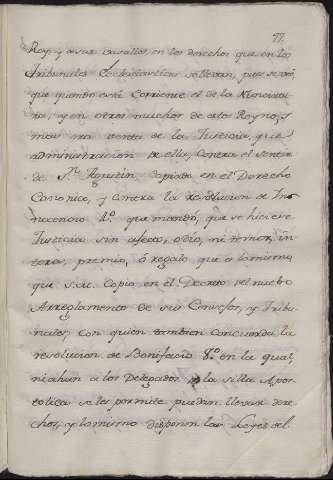 77.
Rey, y a sus vasallos, en los derechos que en los
Tribunales Ecclesiasticos se llevan, pues se ve,
que quando está corriente el de la Nunciatu
ra, y en otros muchos de este Reyno, es
mas una venta de la Justicia, que
administracion de ella, contra el sentir
de Sn. Agustin, copiado en el Derecho
Canonico, y contra la resolucion de Ino
nacencio 4º. que mandó, que se hiciese
Justicia sin afecto, odio, ni temor, in
teres, premio, ó regalo, que es lo mismo
que se copio en el Decreto del nuebo
Arreglamento de sus Consejos, y Tribu
nales, con quien tambien concuerda la
resolucion de Bonifacio 8º. en la qual,
ni ahun a los Delegados de la silla Apos
tolica se les permite puedan llevar dere
chos, y lo mismo disponen las Leyes del